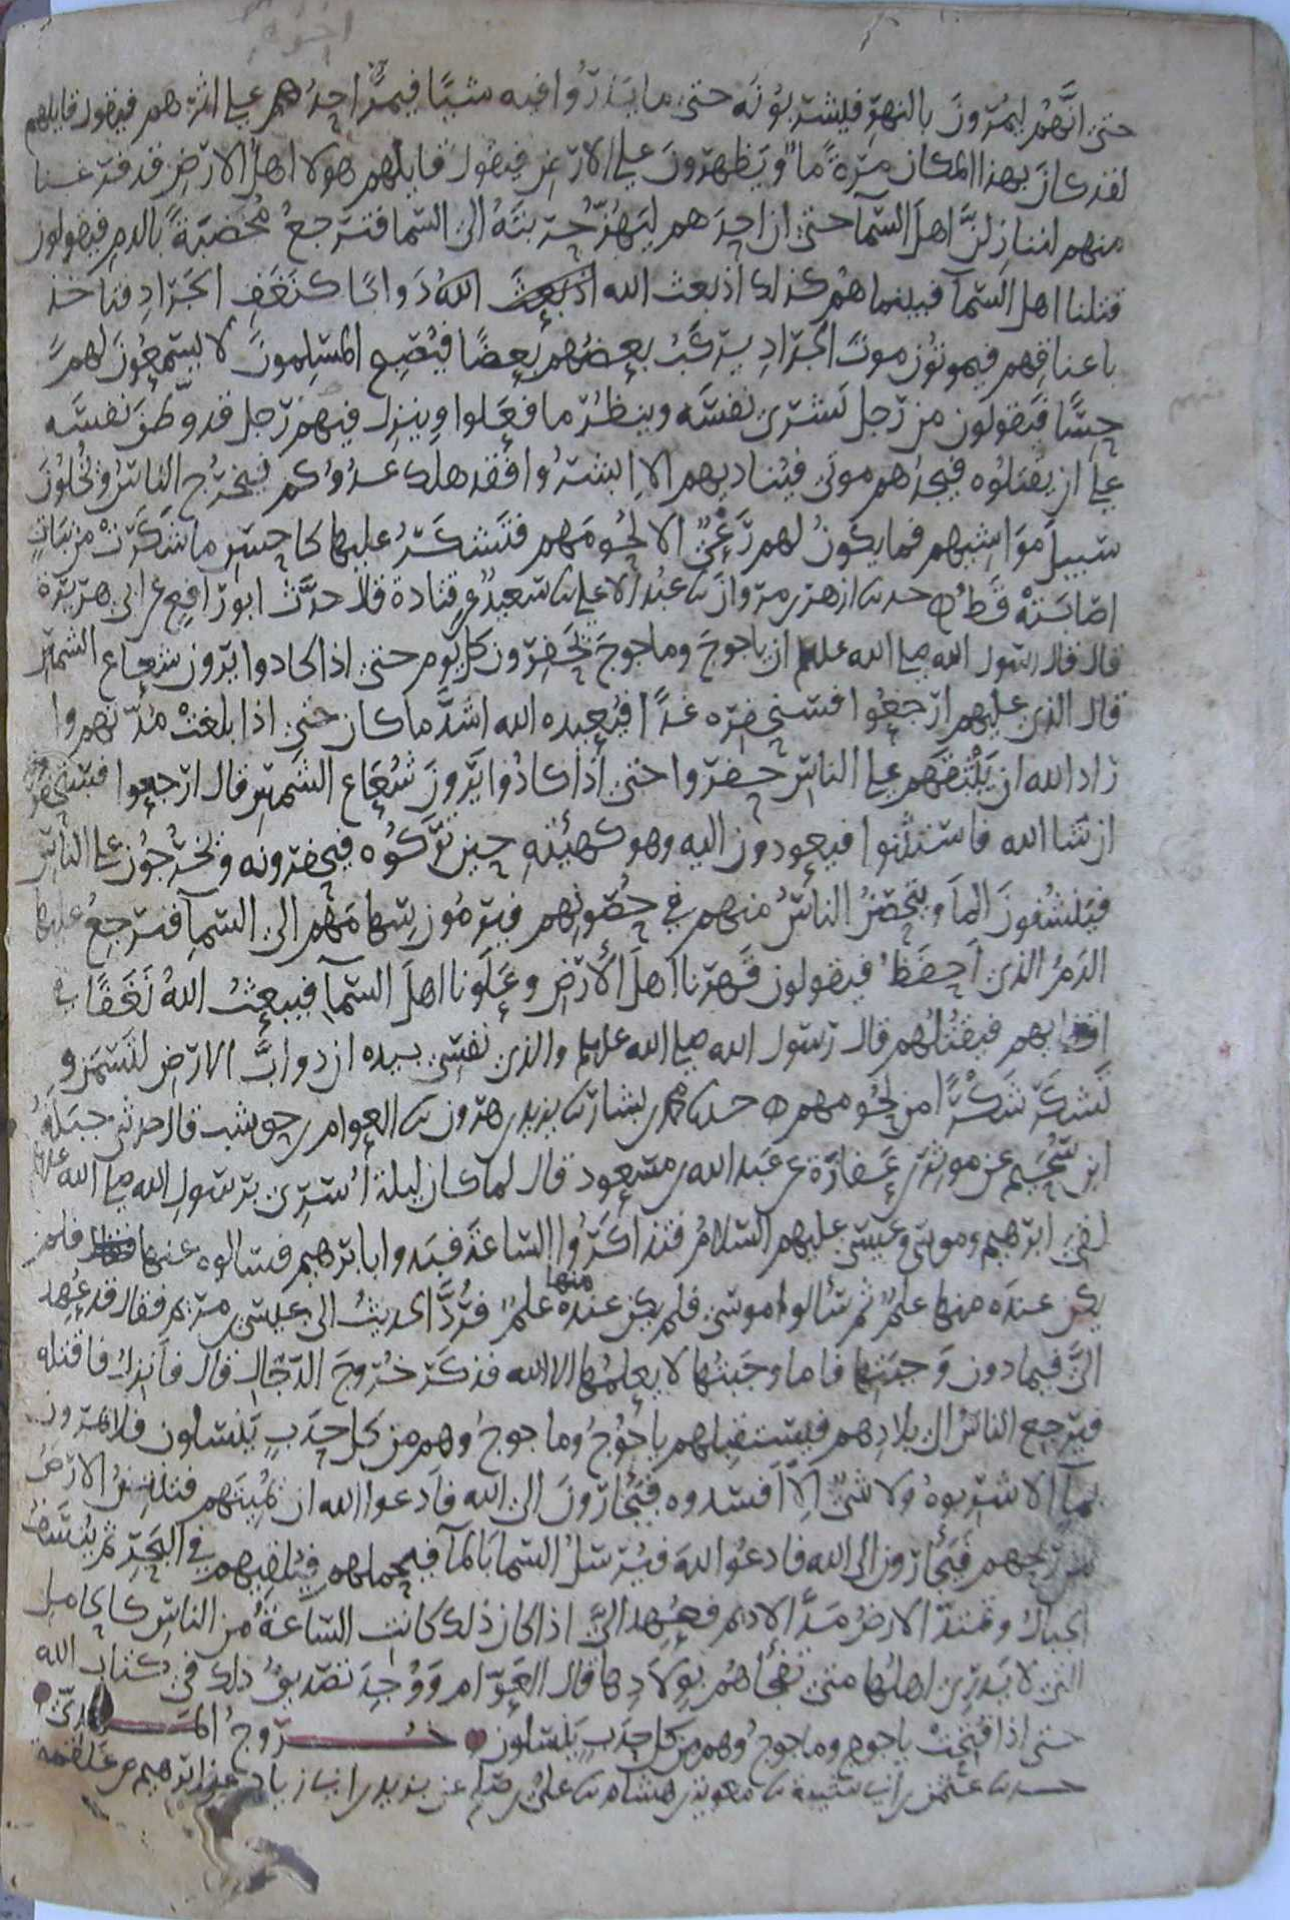 حتى انَّهُم ليمُرّونَ بالنهرِ فيشربُونَه حتى ما يَذرُوا فيه شيئًا فيمرُّ اخِرُهم على اثرهم فيقول قايلهم
لقد كانَ بهذا المكان مرةً ما ويَظهرونَ على الارضِ فيقول قايلهم هولا اهل الارضِ قد فرغنا
منهم لننازِلنَّ اهلَ السَّما حتى ان احِدَهم ليَهُزُّ حربتَهُ الى السَّما فترجعُ مُخضبَةً بالدمِ فيقولون
قتلنا اهل السَّما فبينما هُم كذلك اذ بعث الله اذ بَعَثَ اللهُ دَوابًا كنَغَفِ الجَرَادِ فتاخذ
باعناقِهم فيموتُون موتَ الجَرَادِ يركَبُ بعضُهم بَعضًا فيُصبح المُسلِمونَ لا يسمعُونَ لهم
حِسًّا فيَقولون مَن رَجل يَشرى نفسَه وينظُرُ ما فعَلوا وينزِل فيهم رَجل قد وَطَّنَ نفسَه
على ان يَقتلوُه فيجدُهم موتى فيُناديهم الا ابشرُوا فقد هلك عدُوُكم فيخرُج الناسُ ويُخلُونَ
سَبيلَ مَوَاشِيهم فما يكونُ لهم رَعْىٌ الا لحُومُهم فتَشكَرُ عليها كاحسَنِ ما شكَرَتْ من نبَاتٍ
اصَابَتْهُ قَطُّ ه حدثنا ازهر بن مروان ثنا عبدُ الاعلى ثنا سَعيدٌ عن قتادة قال حدَّث ابو رَافعٍ عن ابى هريرة
قال قال رسول الله صلى الله عليه وسلم ان ياجوجَ وماجوجَ يَحفِرُون كل يوم حتى اذا كادوا يَرَون شعاع الشمسِ
قال الذى عليهم ارجعُوا فسنحفِره غدًا فيُعيده الله اشدَّ ما كان حتى اذا بلغتْ مُدَّتهم وا
راد الله ان يَبْعَثَهم على الناس حفروا حتى اذا كادُوا يَرَونَ شُعَاع الشمسِ قال ارجعوا فسنحفره
ان شا الله فاستثنَوا فيعودون اليه وهو كهيئتهِ حين تَرَكوُه فيحفرونه ويَخرجُونَ على الناسِ
فينشفُونَ المآ ويَتحَصَّنُ الناسُ منهم في حصُونِهم فيرمُون بسهامَهم الى السمآ فترجعُ عليها
الدَمُ الذى احفَظ فيقولون قَهَرنا اهلَ الأرض وعَلَونا اهلَ السَّمآ فيبعثُ اللهُ نَغَفًا في
اقفايهم فيقتُلُهم قال رَسول الله صلى الله عليه وسلم والذى نفسِى بيده ان دوابَّ الارضِ لتَسمَن و
تَشكَرُ شَكَرًا من لحُومهم ه حدثنا محمد بن بشار ثنا يزيد بن هرون ثنا العوام بن حوشب قال حدثنى جَبَلةُ
ابن سُحَيمٍ عن موثر بن عَفازَةَ عن عَبد الله بن مسعود قال لما كان ليلة أُسرِىَ برَسُولِ الله صلى الله عليه وسلم
لقى ابرهيم وموسى وعيسى عليهم السَّلامُ فتذاكَرُوا السَّاعَةَ فبَدوا بابرهيم فسالوه عنها فلم
يكن عندَه منها علمٌ ثم سَألوا موسى فلم يكن عندَه منها علمٌ فرُدَّ الحديثُ الى عيسى بن مريم فقال قد عُهِدَ
الىَّ فيما دون وَجبَتِها فاما وجَبتُها لا يعلمُها الا الله فذكَرَ خُرُوجَ الدَّجال قال فانزِلُ فاقتله
فيرجع الناسُ الى بلادِهم فيستقبِلهم يأجُوجُ وماجوجُ وهم من كل حدَبٍ يَنسِلون فلا يمرون
بمآٍ الا شَرِبوهُ ولا شىٍ الَّا افسدوه فيَجأرُونَ الى الله فأدعوا الله ان يُميتَهم فتنتنُ الارضُ
من ريحهم فيَجأرُون الى الله فادعُوا اللهَ فيُرسِلُ السَّما بالمآ فيحملهم فيُلقِيهم في البَحرِ ثم يُنسَفُ
الجبالُ وتمتدُّ الارضُ مَدَّ الاديم فعُهِدَ الىَّ اذا كان ذلك كانت السَّاعَةُ من الناسِ كالحامِلِ
التى لا يَدرى اهلُها متى تَفجُأهُم بوِلَادِها قال العَوَّام وَوُجِدَ تصديقُ ذلك في كتابِ الله
حتى اذا فتِحتْ ياجوج وماجوجُ وهم من كل حدَبٍ يَنسِلون خُرُوجُ المَهدىّ
حدثنا عثمن بن ابى شيبة ثنا معوية بن هشام ثنا علىُّ بن صالح عن يزيد بن ابى زياد عن ابرهيم عن علقمة